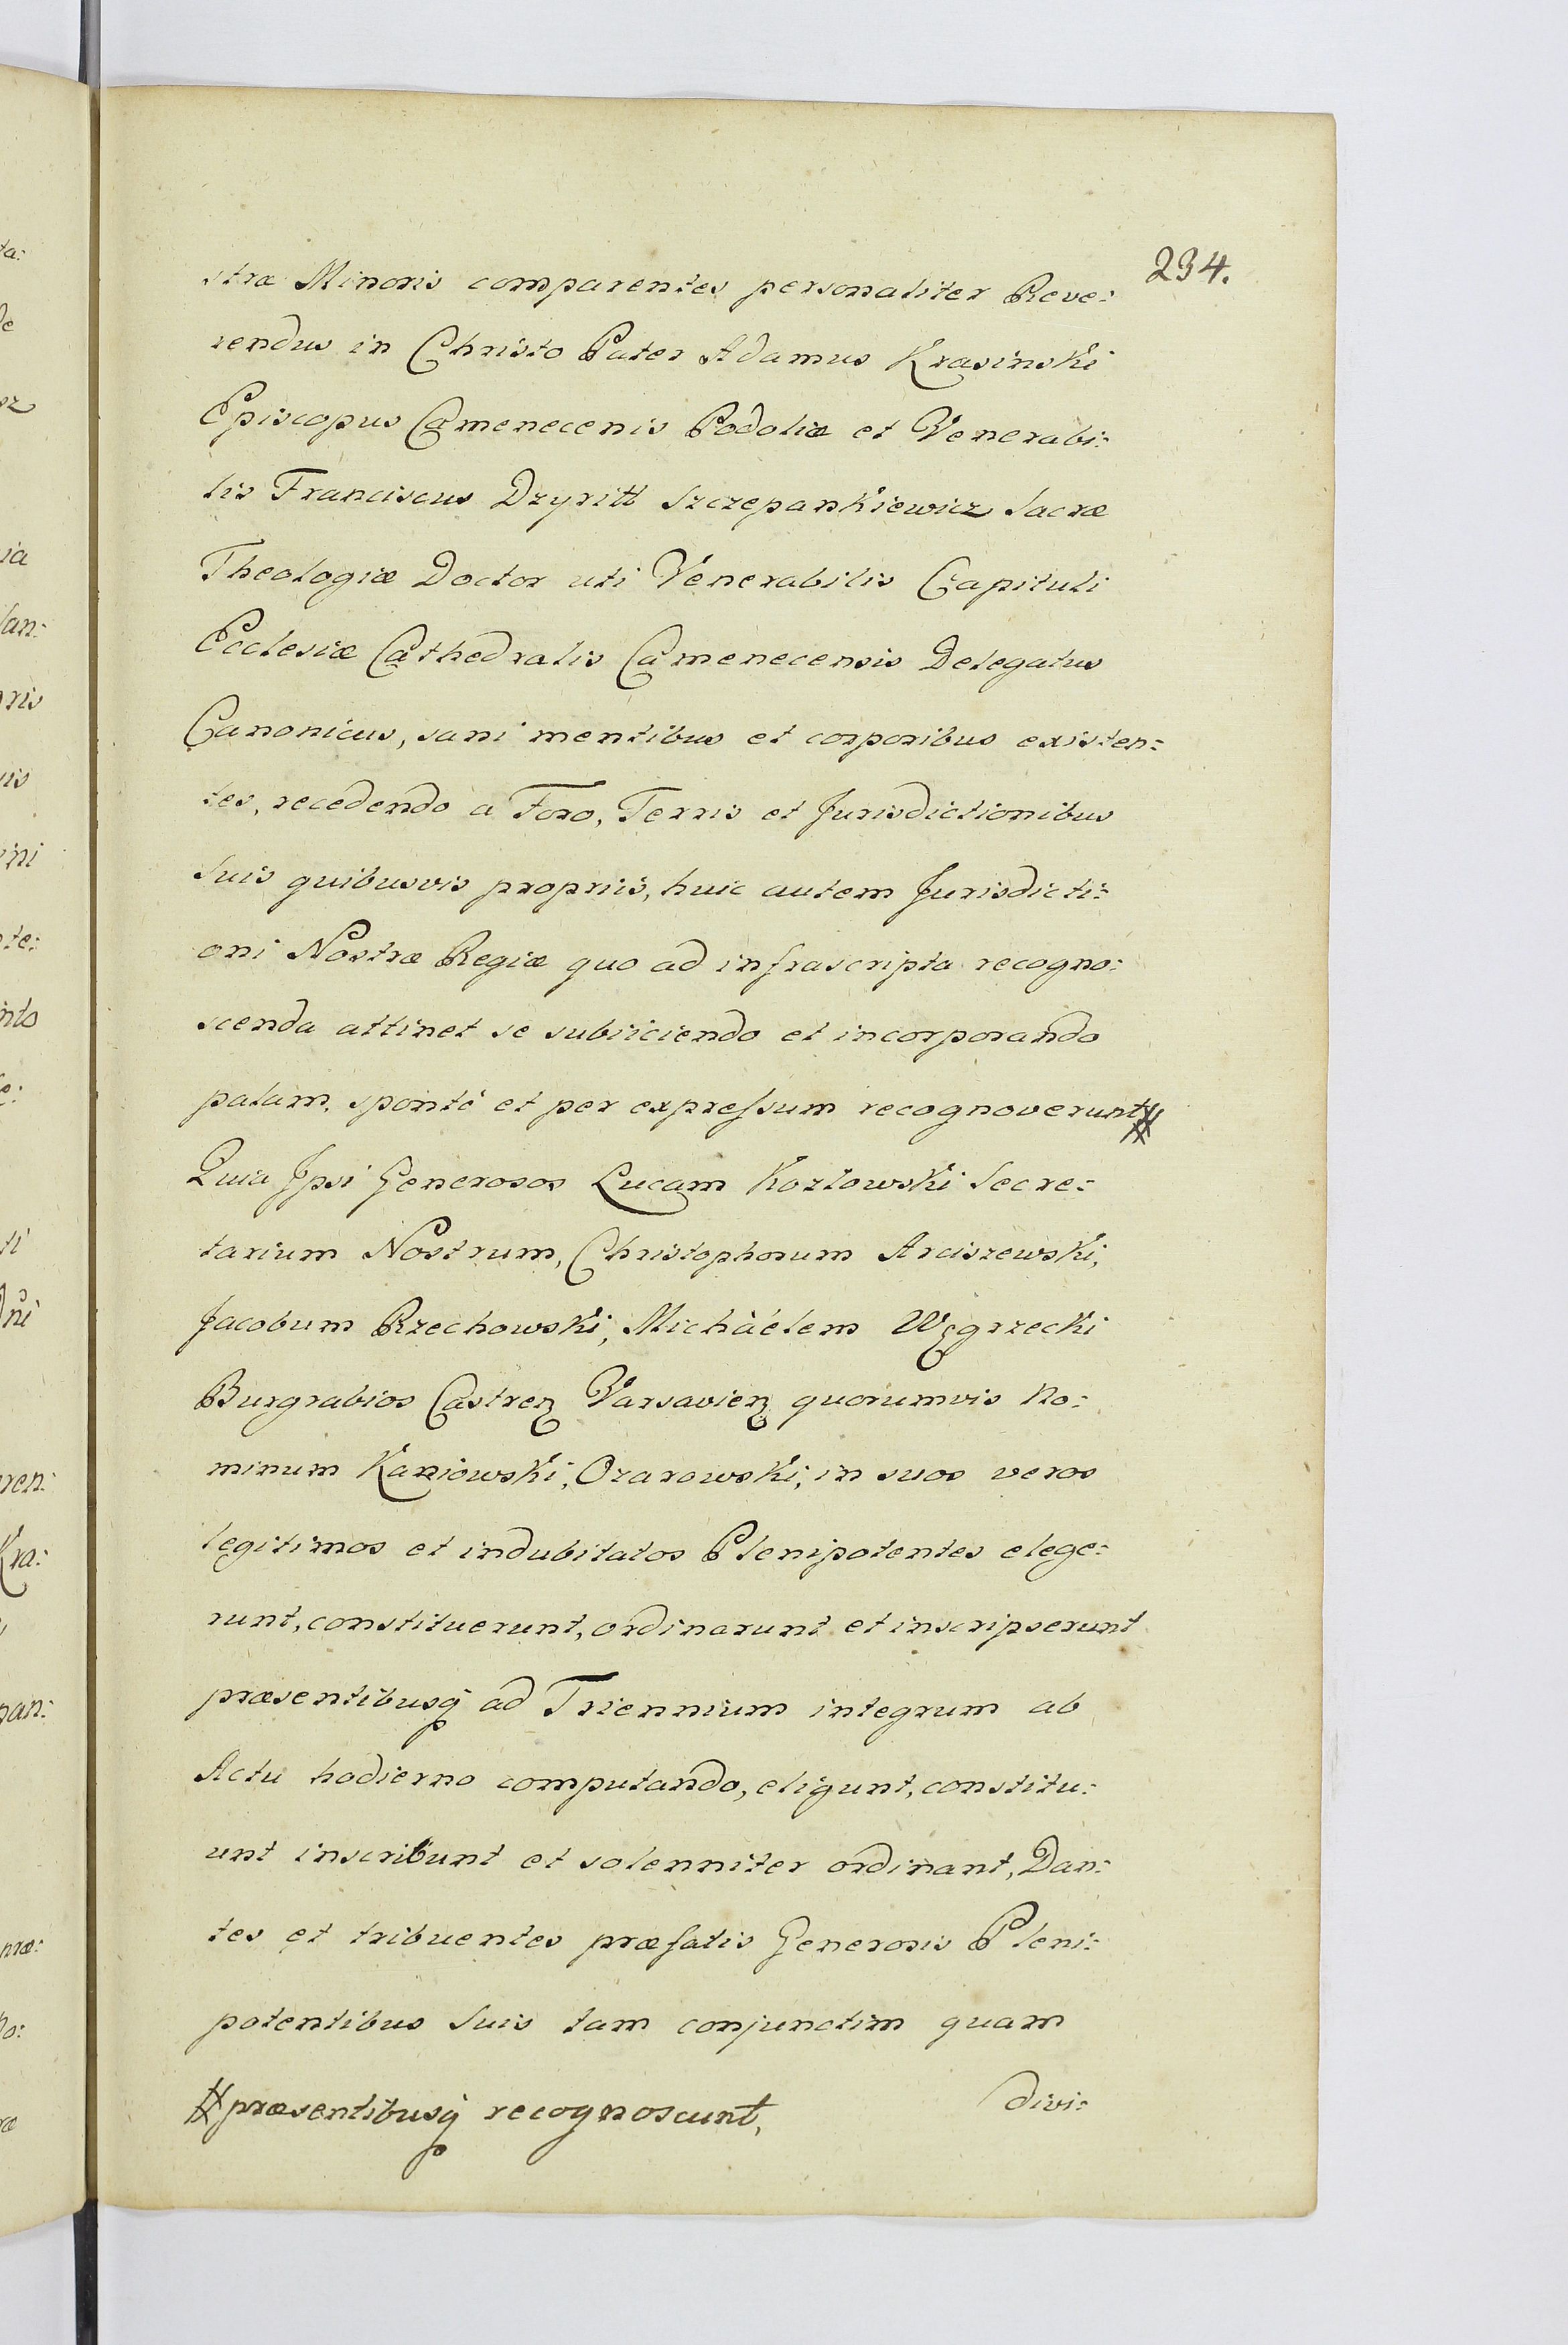 234.
stræ Minoris comparentes personaliter Reve:
rendus in Christo Pater Adamus Krasinski
Episcopus Camenecenis Podoliæ et Venerabi:
lis Franciscus Dzyritt Szczepankiewicz Sacræ
Theologiæ Doctor uti Venerabilis Capituli
Ecclesiæ Cathedralis Camenecensis Delegatus
Canonicus, sani mentibus et corporibus existen:
tes, recedendo a Foro, Terris et Jurisdictionibus
Suis quibusvis propriis, huic autem Jurisdicti:
oni Nostræ Regiæ quo ad infrascripta recogno:
scenda attinet se subiiciendo et incorporando
palam, sponté et per expressum recognoverunt #
Quia Ipsi Generosos Lucam Kozłowski Secre:
tarium Nostrum, Christophorum Arciszewski,
Jacobum Rzechowski, Michàélem Węgrzecki
Burgrabios Castreņ Varsavieņ quorumvis No:
minum Kaniowski, Ozarowski, in suos veros
legitimos et indubitatos Plenipotentes elege:
runt, constituerunt, ordinarunt et inscripserunt
præsentibusq̃ ad Triennium integrum ab
Actu hodierno computando, eligunt, constitu:
unt inscribunt et solenniter ordinant, Dan:
tes et tribuentes præfatis Generosis Pleni:
potentibus Suis tam conjunctim quam
divi:
# præsentibusq̃ recognoscunt,